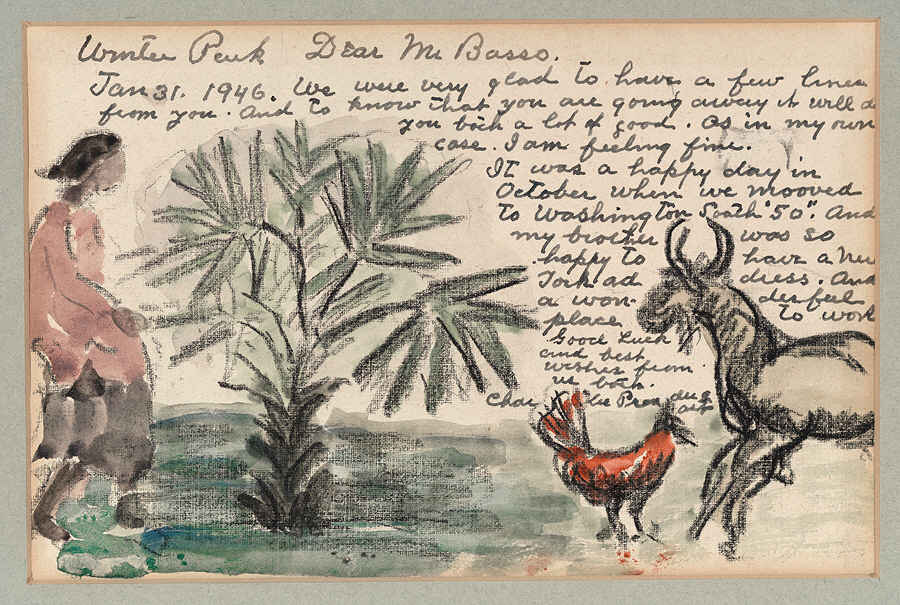 Winter Park Dear Mr Basso.
Jan 31. 1946. We were very glad to have a few lines
from you. And to know that you are going away it will do
you both a lot of good. As in my own
case. I am feeling fine.
It was a happy day in
October when we mooved
to Washington South "50". And
my brother was so
happy to have a New
York ad dress. And
a won- derful
place to work
Good luck
and best
wishes from
us both.